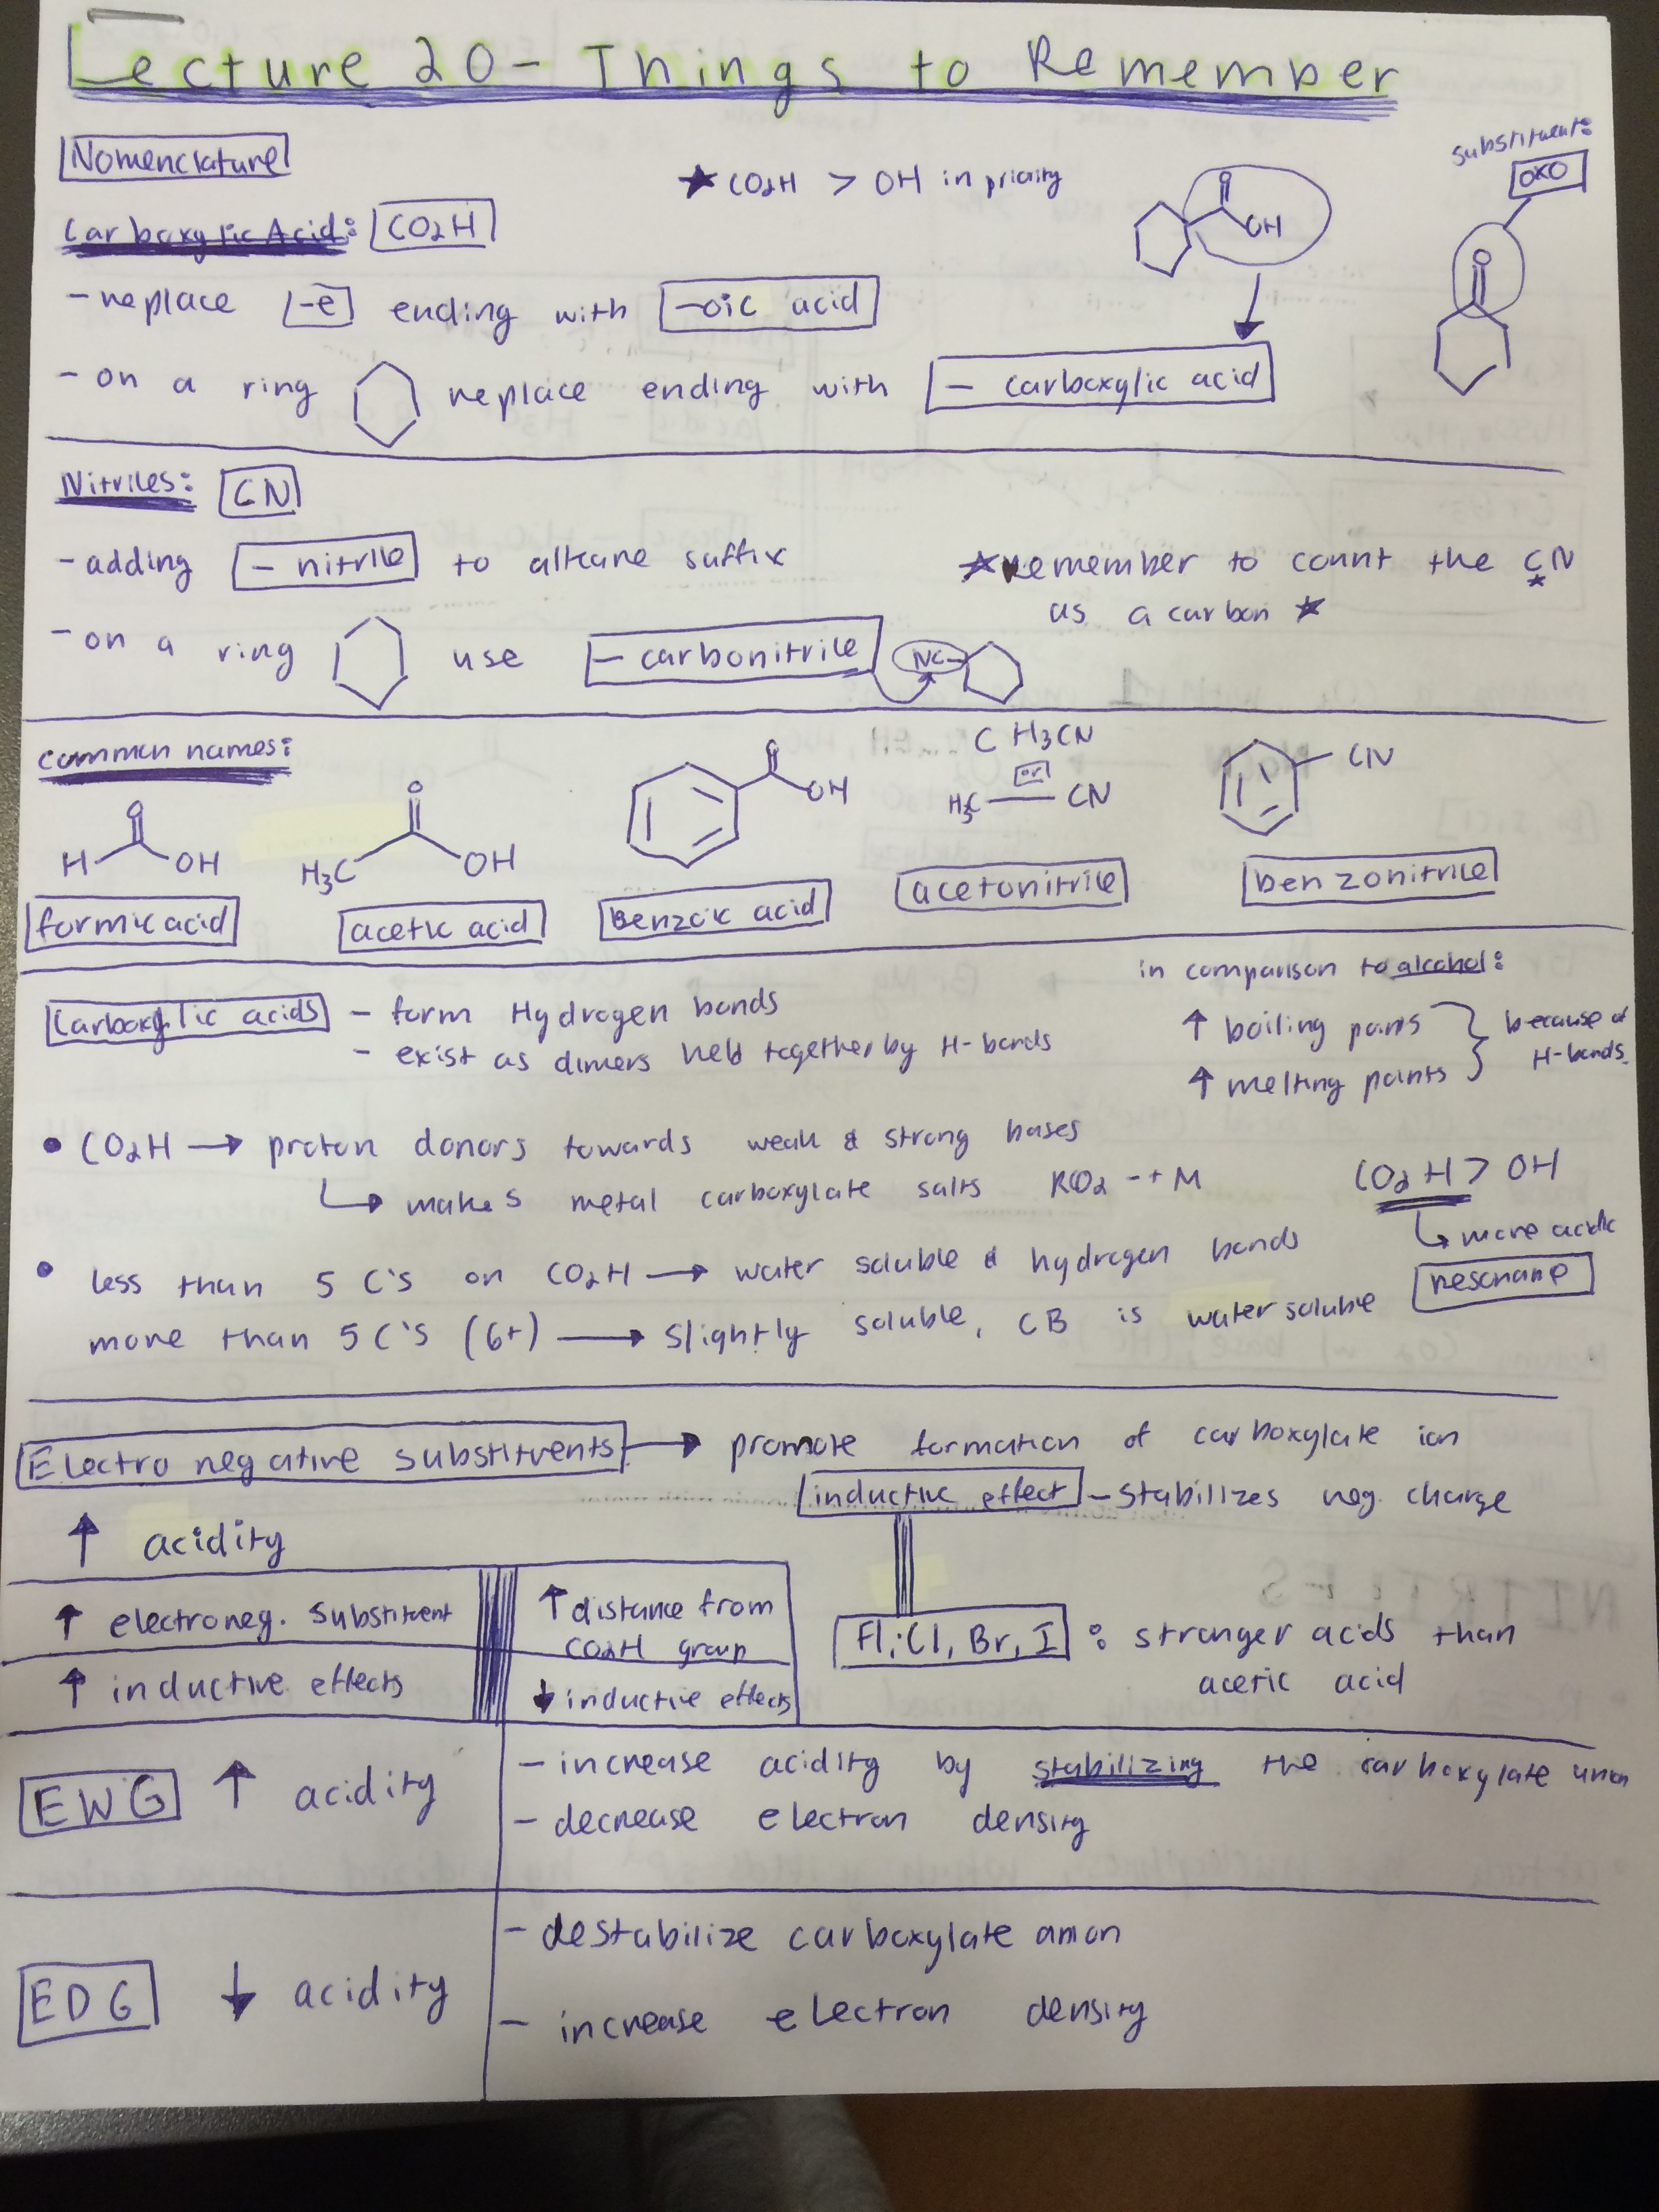 Lecture 20 - Things to Remember
Nomenclature
★ CO2H > OH in priority
substituent:
OXO
Carboxylic Acid: CO2H
O
OH
O
- replace -e ending with -oic acid
- on a ring replace ending with - carboxylic acid
Nitriles: CN
- adding - nitrile to alkane suffix
★ remember to count the CN
as a carbon ★
- on a ring use - carbonitrile NC
common names:
O
H OH
formic acid
O
H3C OH
acetic acid
O
OH
Benzoic acid
CH3CN
or
H3C — CN
acetonitrile
CN
benzonitrile
Carboxylic acids - form Hydrogen bonds
- exist as dimers held together by H-bonds
in comparison to alcohol:
↑ boiling points
↑ melting points
because of
H-bonds.
• CO2H → proton donors towards weak & strong bases
↳ makes metal carboxylate salts RCO2 -+ M
CO2H > OH
↳ more acidic
resonance
• less than 5 C's on CO2H → water soluble & hydrogen bonds
more than 5 C's (6+) → slightly soluble, CB is water soluble
Electronegative substituents → promote formation of carboxylate ion
inductive effect - stabilizes neg. charge
↑ acidity
↑ electroneg. substituent
↑ inductive effects
↑ distance from
CO2H group
↓ inductive effects
Fl, Cl, Br, I : stronger acids than
acetic acid
EWG ↑ acidity
- increase acidity by stabilizing the carboxylate anion
- decrease electron density
EDG ↓ acidity
- destabilize carboxylate anion
- increase electron density